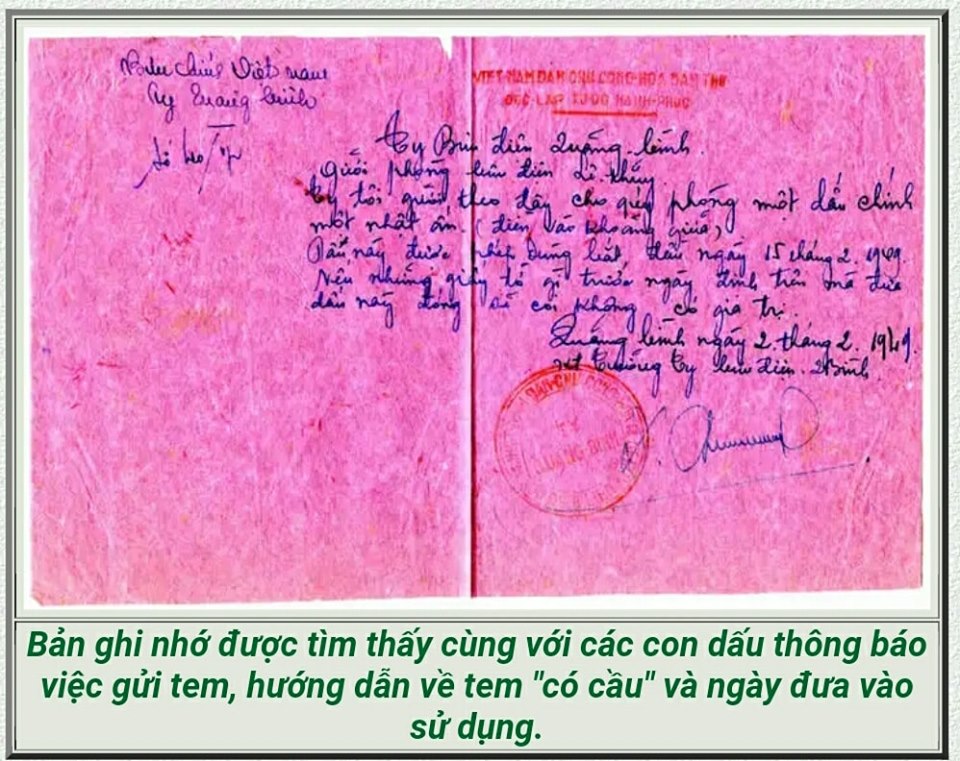 Bưu chính Việt nam
Ty Quảng bình
Số
VIỆT-NAM DÂN CHỦ CỘNG-HÒA DÂN THỨ
ĐỘC-LẬP TỰ-DO HẠNH-PHÚC
Ty Bưu điện Quảng-bình
Gửi phòng bưu điện
Ty tôi gửi theo đây cho quý phòng một dấu chính
một nhật ấn (điền vào khoảng giữa)
Dấu này được phép dùng bắt đầu ngày 15 tháng 2. 1949
Nếu những giấy tờ gì trước ngày định trên mà đưa
dấu này đóng sẽ coi không có giá trị.
Quảng bình ngày 2. tháng 2. 1949.
Trưởng Ty bưu điện Q Bình
DÂN-CHỦ CỘNG
TY
QUẢNG BÌNH
Bản ghi nhớ được tìm thấy cùng với các con dấu thông báo
việc gửi tem, hướng dẫn về tem "có cầu" và ngày đưa vào
sử dụng.